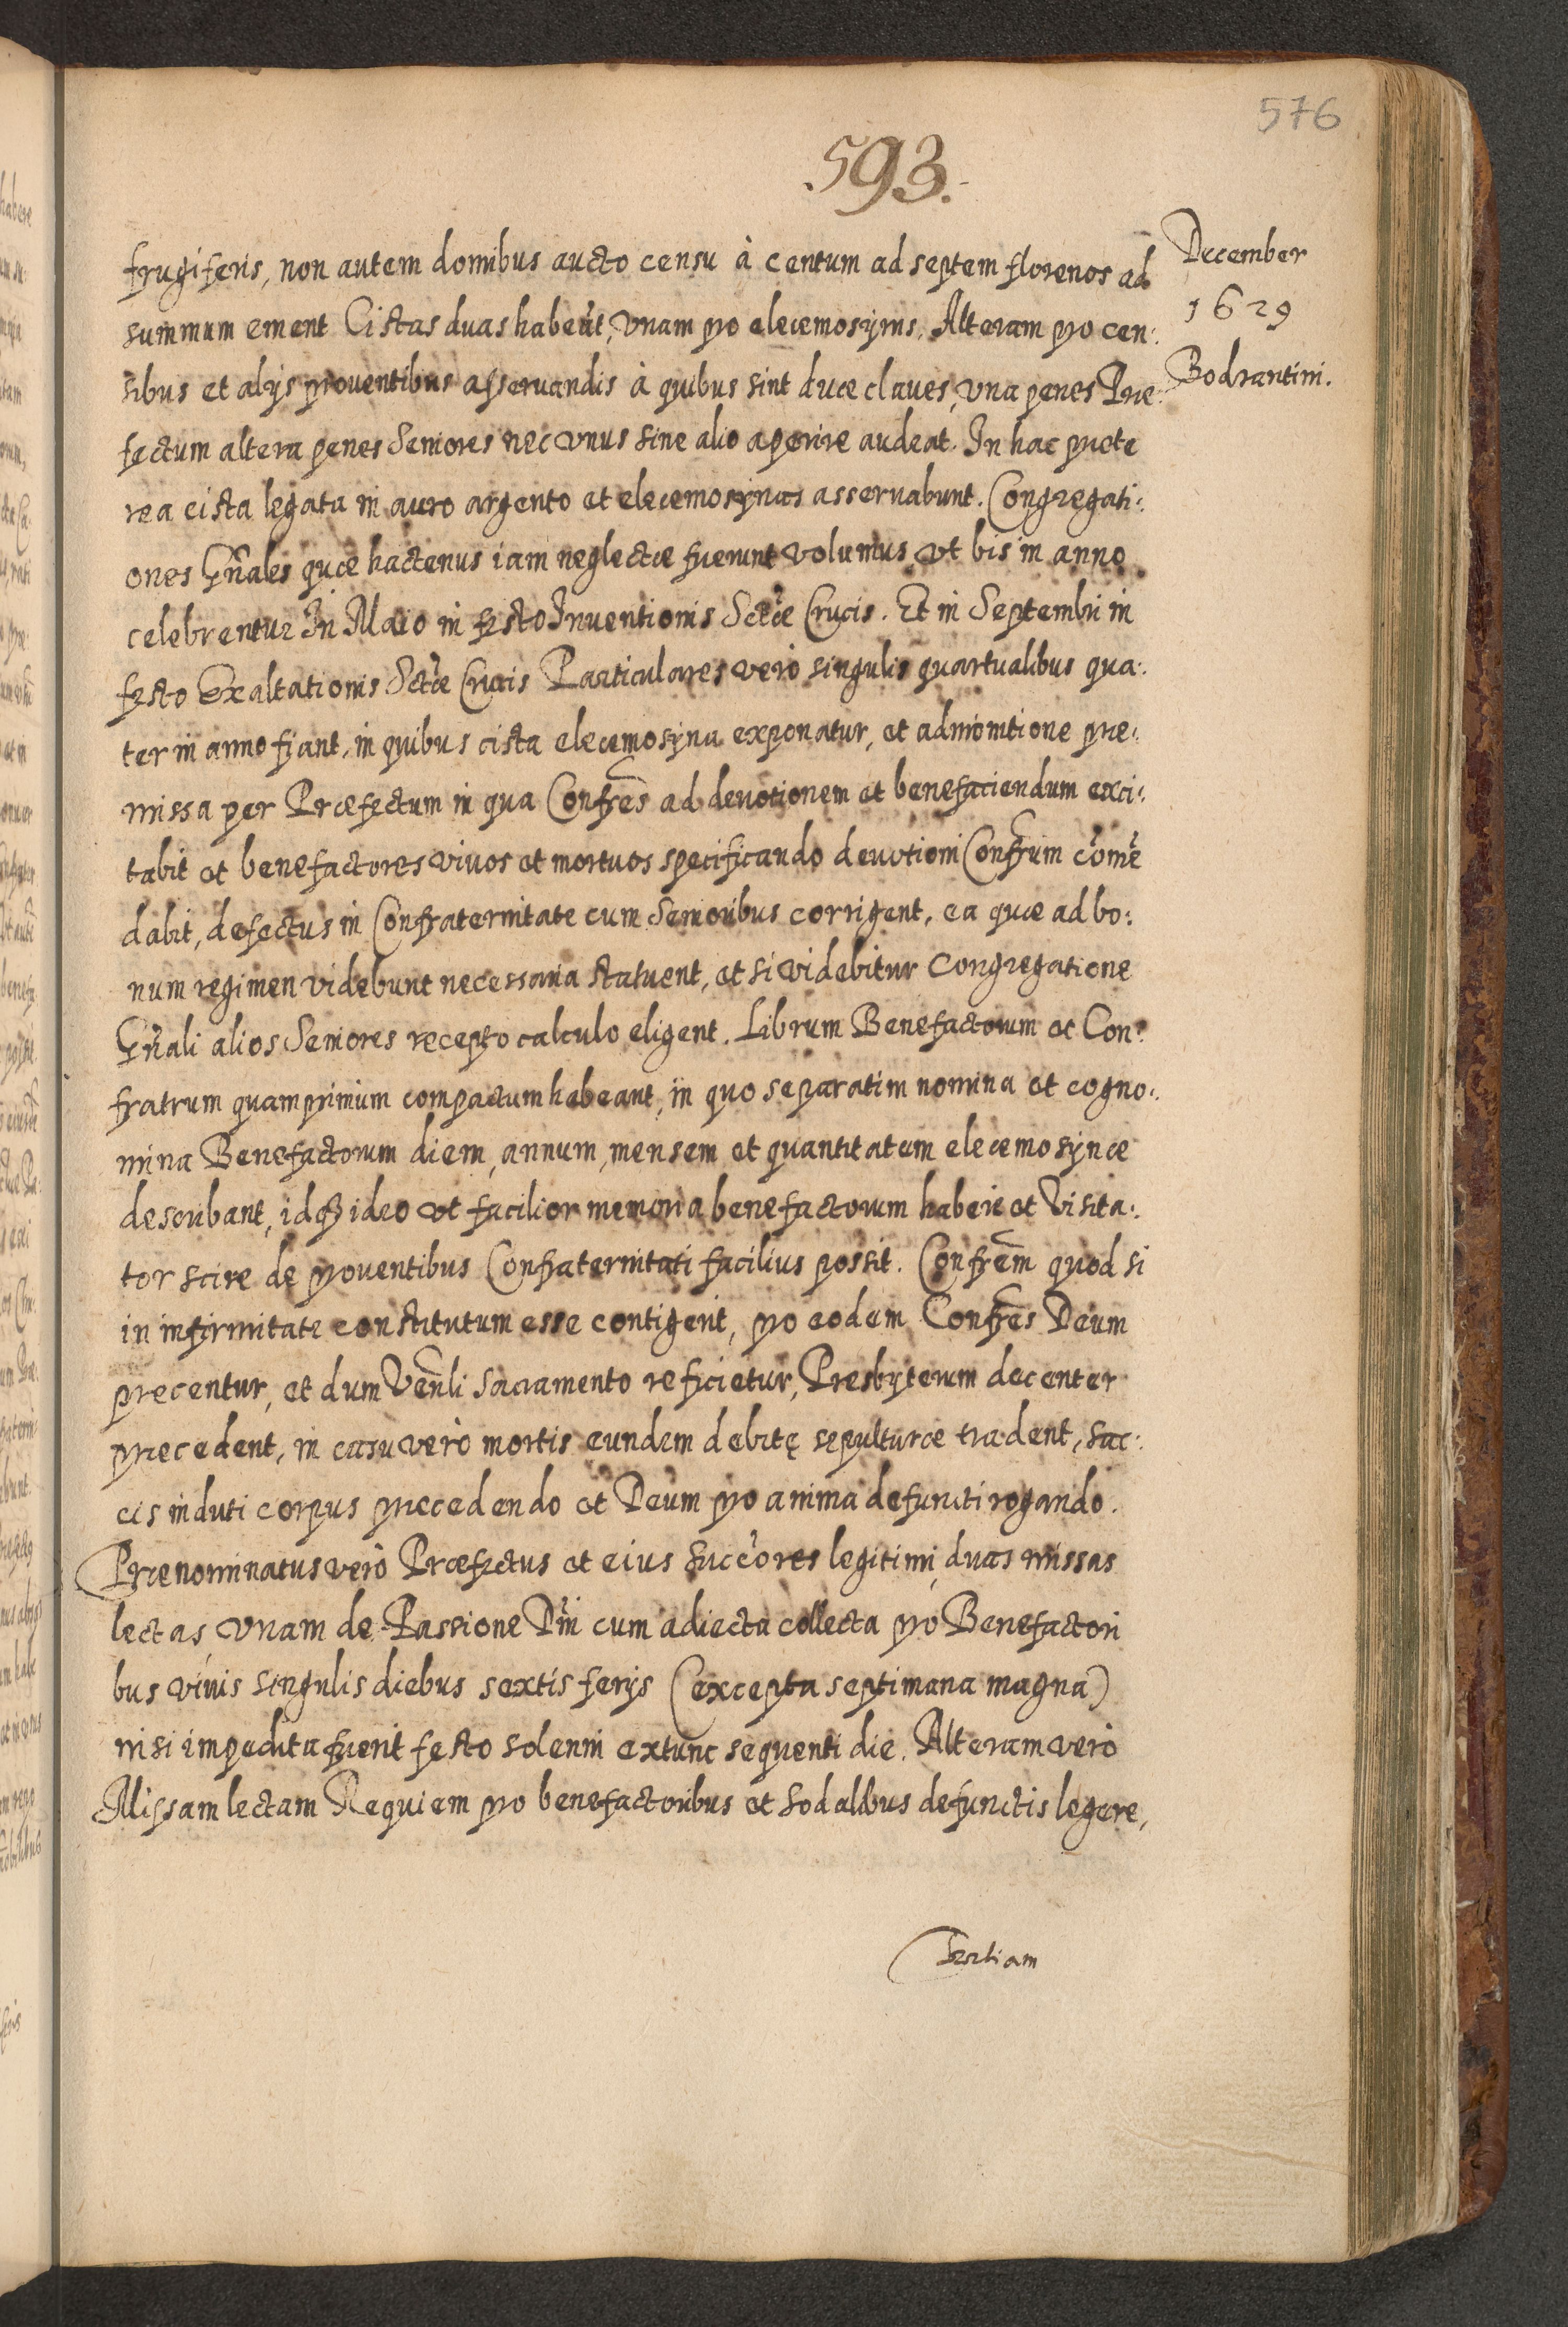 576
.593.
December
1629
Bodzantini.
frugiferis, non autem domibus aucto censu à centum ad septem florenos ad
summum ement Cistas duas habeũt, Vnam pro eleemosynis, Alteram pro cen:
sibus et alijs proventibus asservandis à quibus sint duæ claves, vna penes Præ:
fectum altera penes Seniores nec vnus sine alio aperire audeat. In hac præte
rea cista legata in auro argento et eleemosynas asservabunt. Congregati:
ones Gñales quæ hactenus iam neglectæ fuerunt volumus vt bis in anno
celebrentur In Maio in festo Inventionis Sctæ Crucis. Et in Septembri in
festo Exaltationis Sctæ Crucis Particulares verò singulis quartualibus qua:
ter in anno fiant, in quibus cista eleemosyna exponatur, et admonitione præ:
missa per Præfectum in qua Confres ad devotionem et benefaciendum exci:
tabit et benefactores vivos et mortuos specificando devotioni Confrum cõmẽ
dabit, defectus in Confraternitate cum Senioribus corrigent, ea quæ ad bo:
num regimen videbunt necessaria statuent, et si videbitur Congregatione
Gñali alios Seniores recepto calculo eligent. Librum Benefactorum et Con:
fratrum quamprimum compactum habeant, in quo separatim nomina et cogno:
mina Benefactorum diem, annum, mensem et quantitatem eleemosynæ
describant, idq3 ideo vt facilior memoria benefactorum haberi et Visita:
tor scire de proventibus Confraternitati facilius possit. Confrem quod si
in infirmitate constitutum esse contigerit, pro eodem Confres Deum
precentur, et dum Venli Sacramento reficietur, Presbyterum decenter
præcedent, in casu verò mortis eundem debitę sepulturæ tradent, sac:
cis induti corpus præcedendo et Deum pro anima defuncti rogando.
Prænominatus verò Præfectus et eius succõres legitimi, duas missas
lectas vnam de Passione Dñi cum adiecta collecta pro Benefactori
bus vivis singulis diebus sextis ferijs (excepta septimana magna)
nisi impedita fuerit festo solenni extunc sequenti die. Alteram verò
Missam lectam Requiem pro benefactoribus et sodalibus defunctis legere,
Tertiam